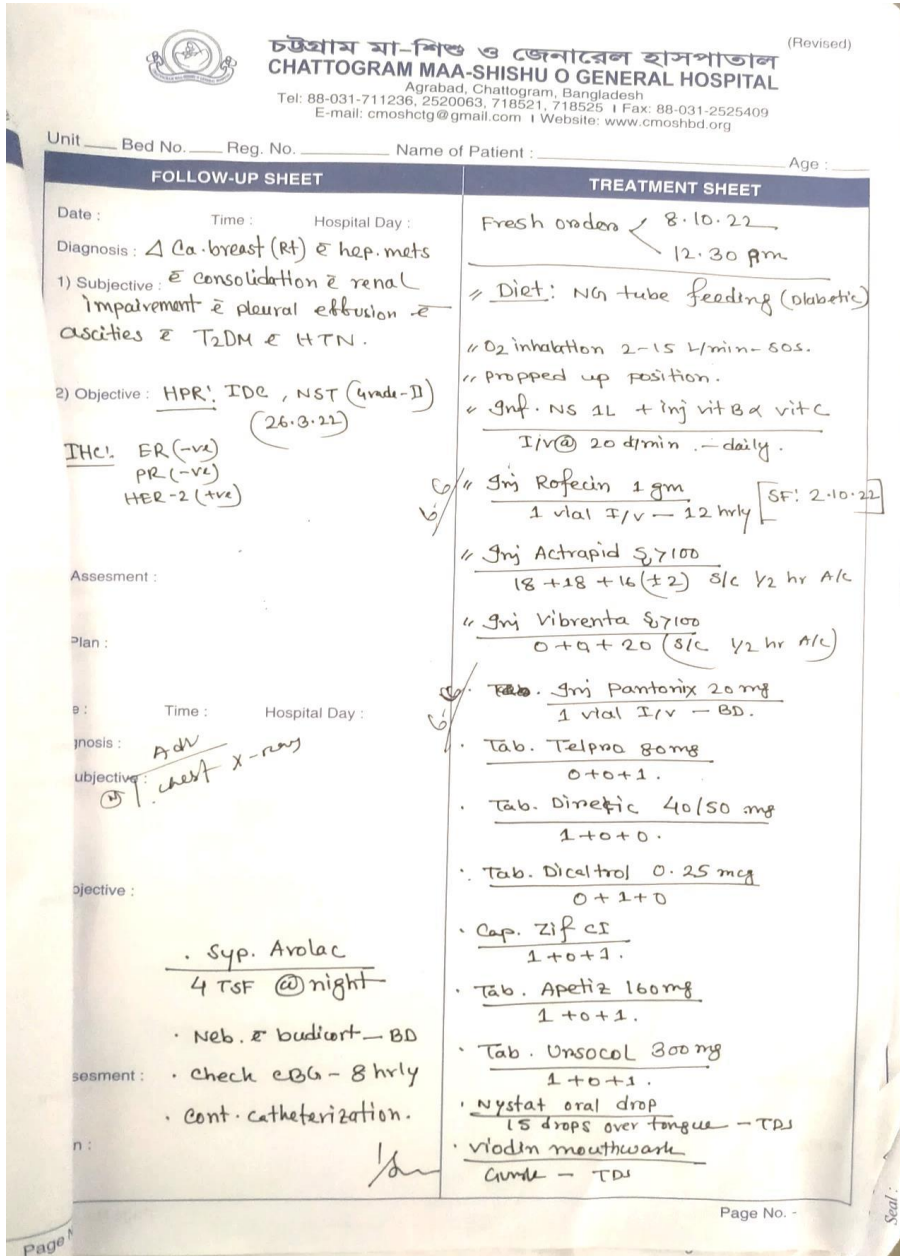 (Revised)
চট্টগ্রাম মা-শিশু ও জেনারেল হাসপাতাল
CHATTOGRAM MAA-SHISHU O GENERAL HOSPITAL
Agrabad, Chattogram, Bangladesh
Tel: 88-031-711236, 2520063, 718521, 718525 । Fax: 88-031-2525409
E-mail: cmoshctg@gmail.com । Website: www.cmoshbd.org
Unit ____ Bed No. ____ Reg. No. ____ Name of Patient : ____ Age : ____
FOLLOW-UP SHEET
Date : Time : Hospital Day :
Diagnosis : Δ Ca. breast (Rt) c̄ hep. mets
1) Subjective : c̄ consolidation c̄ renal
impairement c̄ pleural effusion c̄
ascities c̄ T2DM c̄ HTN.
2) Objective : HPR: IDC, NST (Grade-II)
(26.3.22)
IHC: ER (-ve)
PR (-ve)
HER-2 (+ve)
Assesment :
Plan :
e : Time : Hospital Day :
gnosis :
Adv
ubjective :
chest X-ray
bjective :
. Syp. Avolac
4 TSF @ night
. Neb. c̄ budicort - BD
sesment : . Check CBG - 8 hrly
. Cont. catheterization.
n :
Page N
TREATMENT SHEET
Fresh orders < 8.10.22
12.30 pm
" Diet: NG tube feeding (Diabetic)
" O2 inhalation 2-15 L/min - SOS.
" Propped up position.
" Inf. NS 1L + inj vit B & vit C
I/v @ 20 d/min - daily.
6-6
" Inj Rofecin 1 gm
1 vial I/v - 12 hrly [SF: 2.10.22]
" Inj Actrapid 100
18 + 18 + 16 (±2) S/c 1/2 hr A/c
" Inj Vibrenta 100
0 + 0 + 20 (S/c 1/2 hr A/c)
6-6
. Inj Pantonix 20 mg
1 vial I/v - BD.
. Tab. Telpro 80 mg
0+0+1.
. Tab. Diretic 40/50 mg
1+0+0.
. Tab. Dicaltrol 0.25 mcg
0+1+0
. Cap. Zif CI
1+0+1.
. Tab. Apetiz 160 mg
1+0+1.
. Tab. Ursocol 300 mg
1+0+1.
. Nystat oral drop
15 drops over tongue - TDS
. Viodin mouthwash
- TDS
Page No. -
Seal :